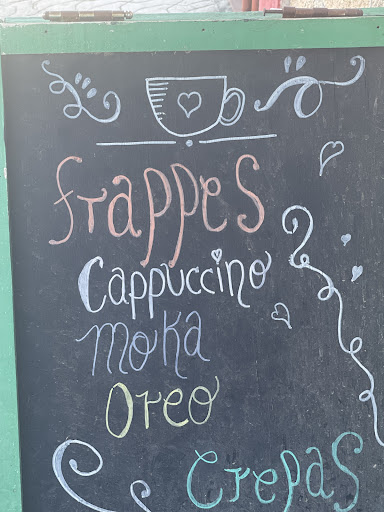 frappes
Cappuccino
moka
Oreo
Crepas